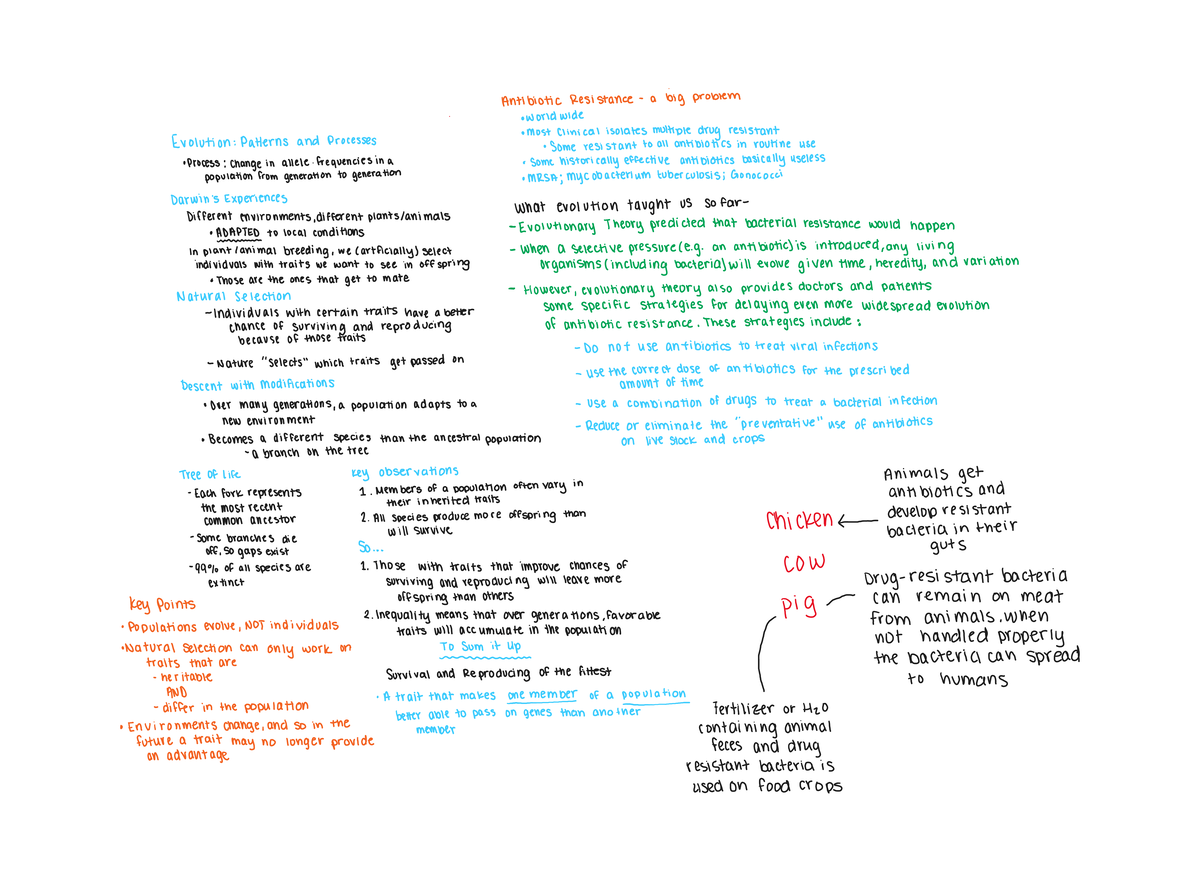 Evolution: Patterns and Processes
•Process: Change in allele frequencies in a
population from generation to generation
Darwin's Experiences
Different environments, different plants/animals
• ADAPTED to local conditions
In plant/animal breeding, we (artficially) select
individuals with traits we want to see in offspring
• Those are the ones that get to mate
Natural Selection
- Individuals with certain traits have a better
chance of surviving and reproducing
because of those traits
- Nature "selects" which traits get passed on
Descent with Modifications
• Over many generations, a population adapts to a
new environment
• Becomes a different species than the ancestral population
- a branch on the tree
Tree of life
- Each fork represents
the most recent
common ancestor
- Some branches die
off, so gaps exist
- 99% of all species are
extinct
Key observations
1. Members of a population often vary in
their inherited traits
2. All species produce more offspring than
will survive
So...
1. Those with traits that improve chances of
surviving and reproducing will leave more
offspring than others
2. Inequality means that over generations, favorable
traits will accumulate in the population
To Sum it Up
Survival and Reproducing of the fittest
• A trait that makes one member of a population
better able to pass on genes than another
member
Key Points
• Populations evolve, NOT individuals
•Natural Selection can only work on
traits that are
- heritable
AND
- differ in the population
• Environments change, and so in the
future a trait may no longer provide
an advantage
Antibiotic Resistance - a big problem
•World wide
•Most clinical isolates multiple drug resistant
• Some resistant to all antibiotics in routine use
• Some historically effective antibiotics basically useless
• MRSA; Mycobacterium tuberculosis; Gonococci
What evolution taught us so far-
- Evolutionary Theory predicted that bacterial resistance would happen
- When a selective pressure (e.g. an antibiotic) is introduced, any living
organisms (including bacteria) will evolve given time, heredity, and variation
- However, evolutionary theory also provides doctors and patients
some specific strategies for delaying even more widespread evolution
of antibiotic resistance. These strategies include:
- Do not use antibiotics to treat viral infections
- use the correct dose of antibiotics for the prescribed
amount of time
- Use a combination of drugs to treat a bacterial infection
- Reduce or eliminate the "preventative" use of antibiotics
on live stock and crops
Animals get
antibiotics and
develop resistant
bacteria in their
guts
Chicken
cow
pig
Drug-resistant bacteria
can remain on meat
from animals. when
not handled properly
the bacteria can spread
to humans
Fertilizer or H2O
containing animal
feces and drug
resistant bacteria is
used on food crops